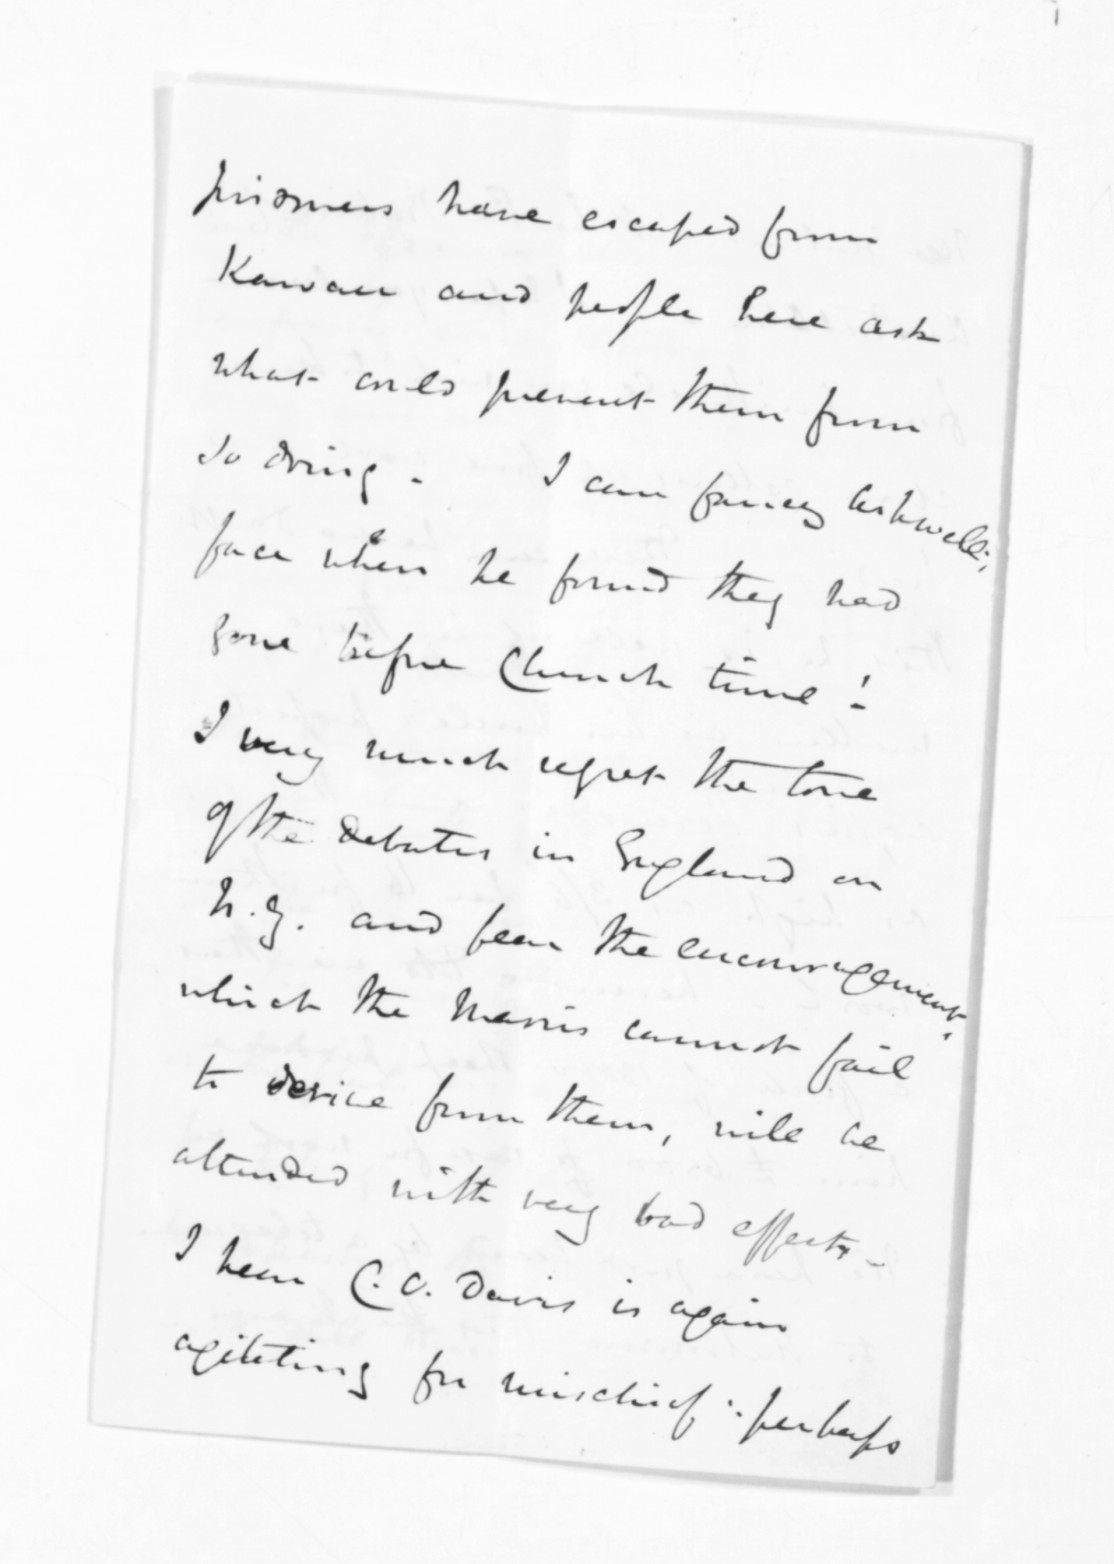 prisoners have escaped from
Kawau and people here ask
what could prevent them from
so doing. I can fancy Ashwell's
face when he found they had
gone before Church time!
I very much regret the tone
of the debates in England on
N.Z. and fear the encouragement
which the Maoris cannot fail
to derive from them, will be
attended with very bad effects.
I hear C.O. Davis is again
agitating for mischief: perhaps